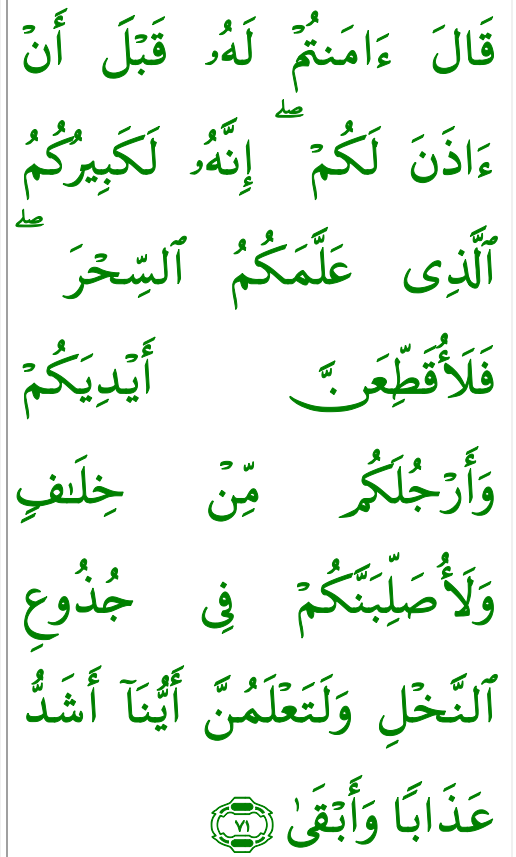 قَالَ ءَامَنتُمْ لَهُۥ قَبْلَ أَنْ
ءَاذَنَ لَكُمْ ۖ إِنَّهُۥ لَكَبِيرُكُمُ
ٱلَّذِى عَلَّمَكُمُ ٱلسِّحْرَ ۖ
فَلَأُقَطِّعَنَّ أَيْدِيَكُمْ
وَأَرْجُلَكُم مِّنْ خِلَـٰفٍ
وَلَأُصَلِّبَنَّكُمْ فِى جُذُوعِ
ٱلنَّخْلِ وَلَتَعْلَمُنَّ أَيُّنَآ أَشَدُّ
عَذَابًا وَأَبْقَىٰ ٧١